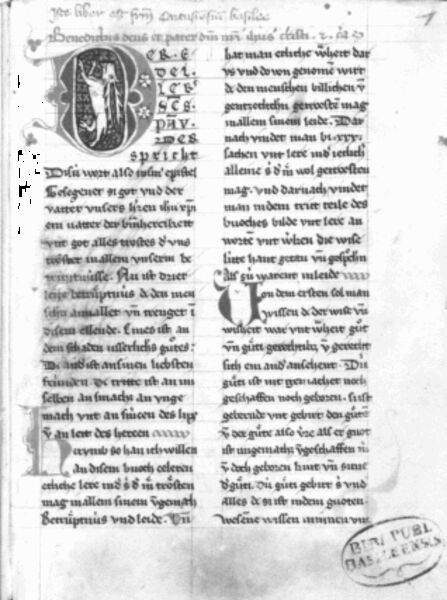 Iste liber est frm Cartusiensium basilee
Benedictus deus et pater dni nri
DER . E
DEL .
LER
HER .
PAV .
LVS
spricht
Disu wort also in sin epistel
Gesegener si got vnd der
vatter vnsers hren ihu xpi
ein vatter der
vnt got alles trostes d vns
trostet in allem vnserm be
trupnusse . Nu ist drier
leije betruptnus d den men
schn an vallet vn trenget i
disem ellende . Eines ist an
dem schaden usserliches gutes :
Dz and ist an sinen liebsten
frunden . Dz tritte ist an im
selben an smacht an vnge
mach vnt an smerzen des libz
vn an leit des herzen
Herumb so han ich willen
an disem buoch ze leren
etliche lere mit d d m trosten
mag in allem sinem vngemach
betruptnus vnd leide . Vn
hat man etliche warheit dar
vs vnd do von genomen wirt
dz den menschen billichen vn
genczeklichn getroesten mag
in allem sinem leide . Dar
nach vindet man bi . xxx .
sachen vnt lere in d ieklich
alleine s d m wol getroesten
mag . vnd dar nach vindet
man in dem trit teile des
buoches bilde vnt lere an
worten vnt werken die wise
lute hant getan vn gesprochn
als su warent in leide
Von dem ersten sol man
wissen dz der wise vn
wisheit war vnt warheit gut
vn guti gerechte vn gerecht
sich ein and ansehent . Du
guti ist nit gemachet noch
geschaffen noch geboren . si ist
geberende vnt gebirt den guten
vn der gute also vere als er guot
ist ungemacht vn geschaffen
vn doch geboren kint vn sune
d guti . Du guti gebirt s vnd
alles dz si ist in dem guoten .
wesene wissen minnen vnt
BIBL PUBL
BASILEENSIS
1